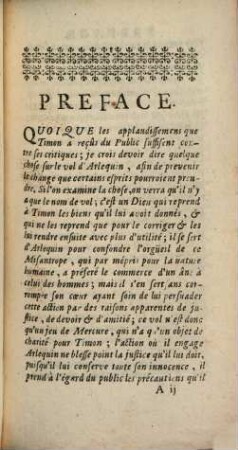 PREFACE.
QUOIQUE les applaudissemens que
Timon a reçûs du Public suffisent con-
tre ses critiques; je crois devoir dire quelque
chose sur le vol d'Arlequin, afin de prevenir
le change que certains esprits pourroient pren-
dre. Si l'on examine la chose, on verra qu'il n'y
a que le nom de vol; c'est un Dieu qui reprend
à Timon les biens qu'il lui avoit donnés, &
qui ne les reprend que pour le corriger & les
lui rendre ensuite avec plus d'utilité; il se sert
d'Arlequin pour confondre l'orgüeil de ce
Misantrope, qui par mépris pour la nature hu-
maine, a préferé le commerce d'un âne à
celui des hommes; mais il s'en sert, sans cor-
rompre son cœur ayant soin de lui persuader
cette action par des raisons apparentes de ju-
stice, de devoir & d'amitié; ce vol n'est donc
qu'un jeu de Mercure, qui n'a qu'un objet de
charité pour Timon; l'action où il engage
Arlequin ne blesse point la justice qu'il lui doit,
puisqu'il lui conserve toute son innocence, il
prend à l'égard du public les précautions qu'il
A ij